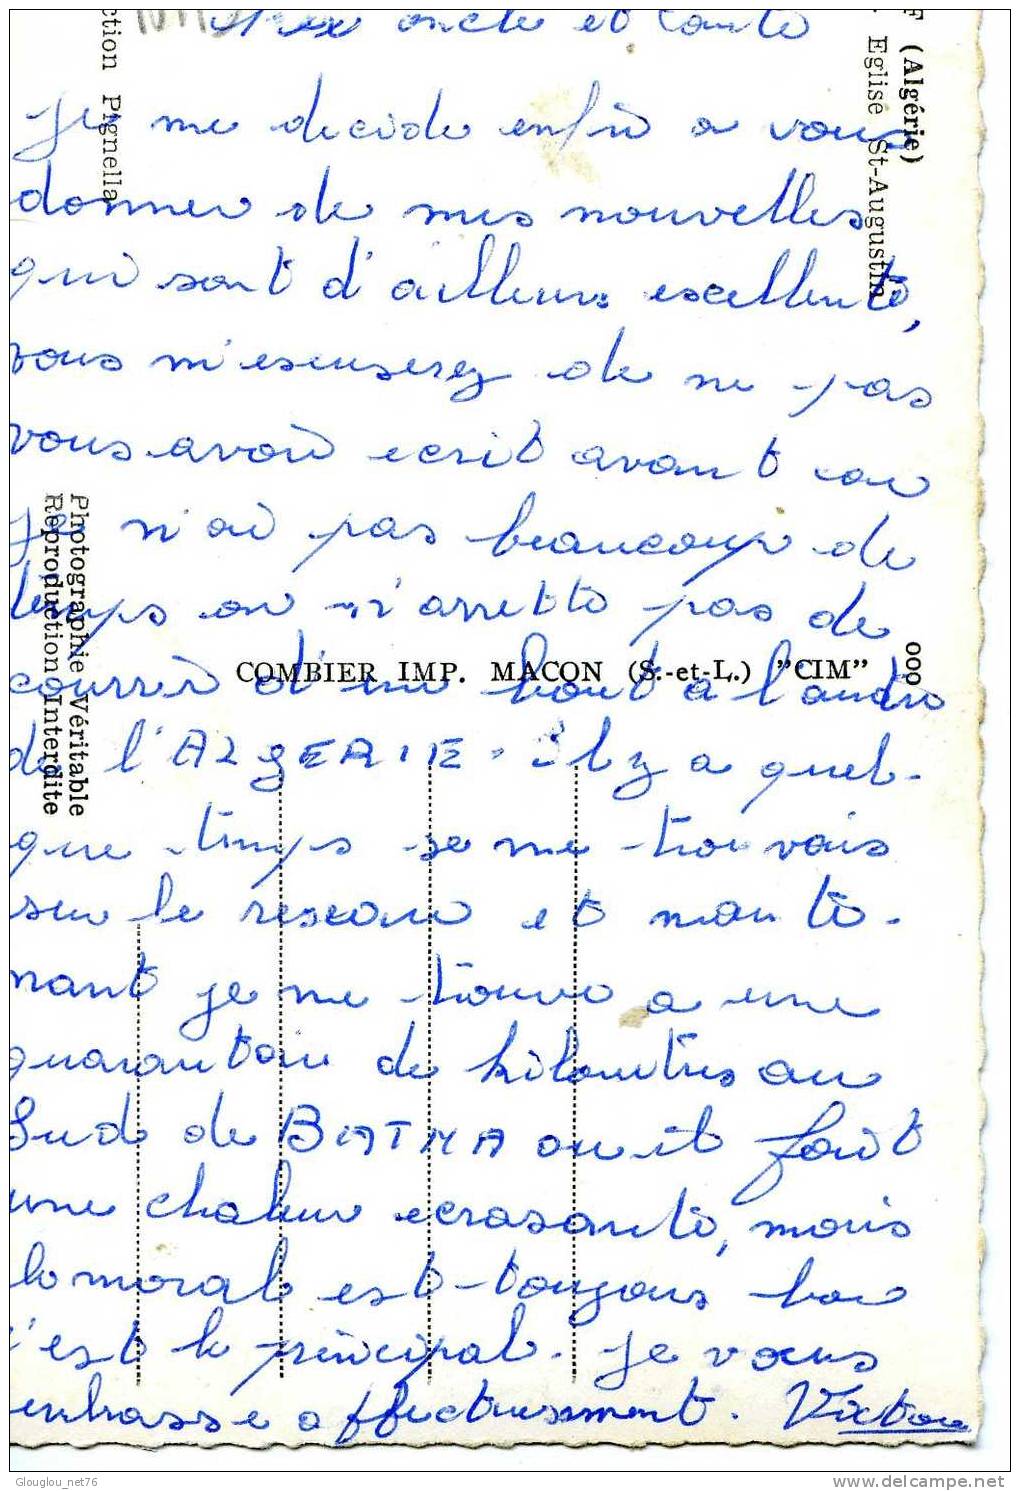 oncle et tante
je me decide enfin a vous
donner de mes nouvelles
qui sont d'ailleurs escellente,
vous m'escuserez de ne pas
vous avoir ecrit avant car
je n'ai pas beaucoup de
temps on n'arrette pas de
courrir d'un bout a l'autre
de l'ALgERIE. il y a quel-
que temps je me trouvais
sur le reseau et mainte-
nant je me trouve a une
quarantaine de kilometres au
Sud de BATNA ou il fait
une chaleur ecrasante, mais
le moral est toujours bon
c'est le principal. je vous
embrasse affectueusement. Victor
F (Algérie)
Eglise St-Augustin
ction Pignella
Photographie Véritable
Reproduction Interdite
COMBIER IMP. MACON (S.-et-L.) "CIM"
000
Glouglou_net76
© delcampe.net